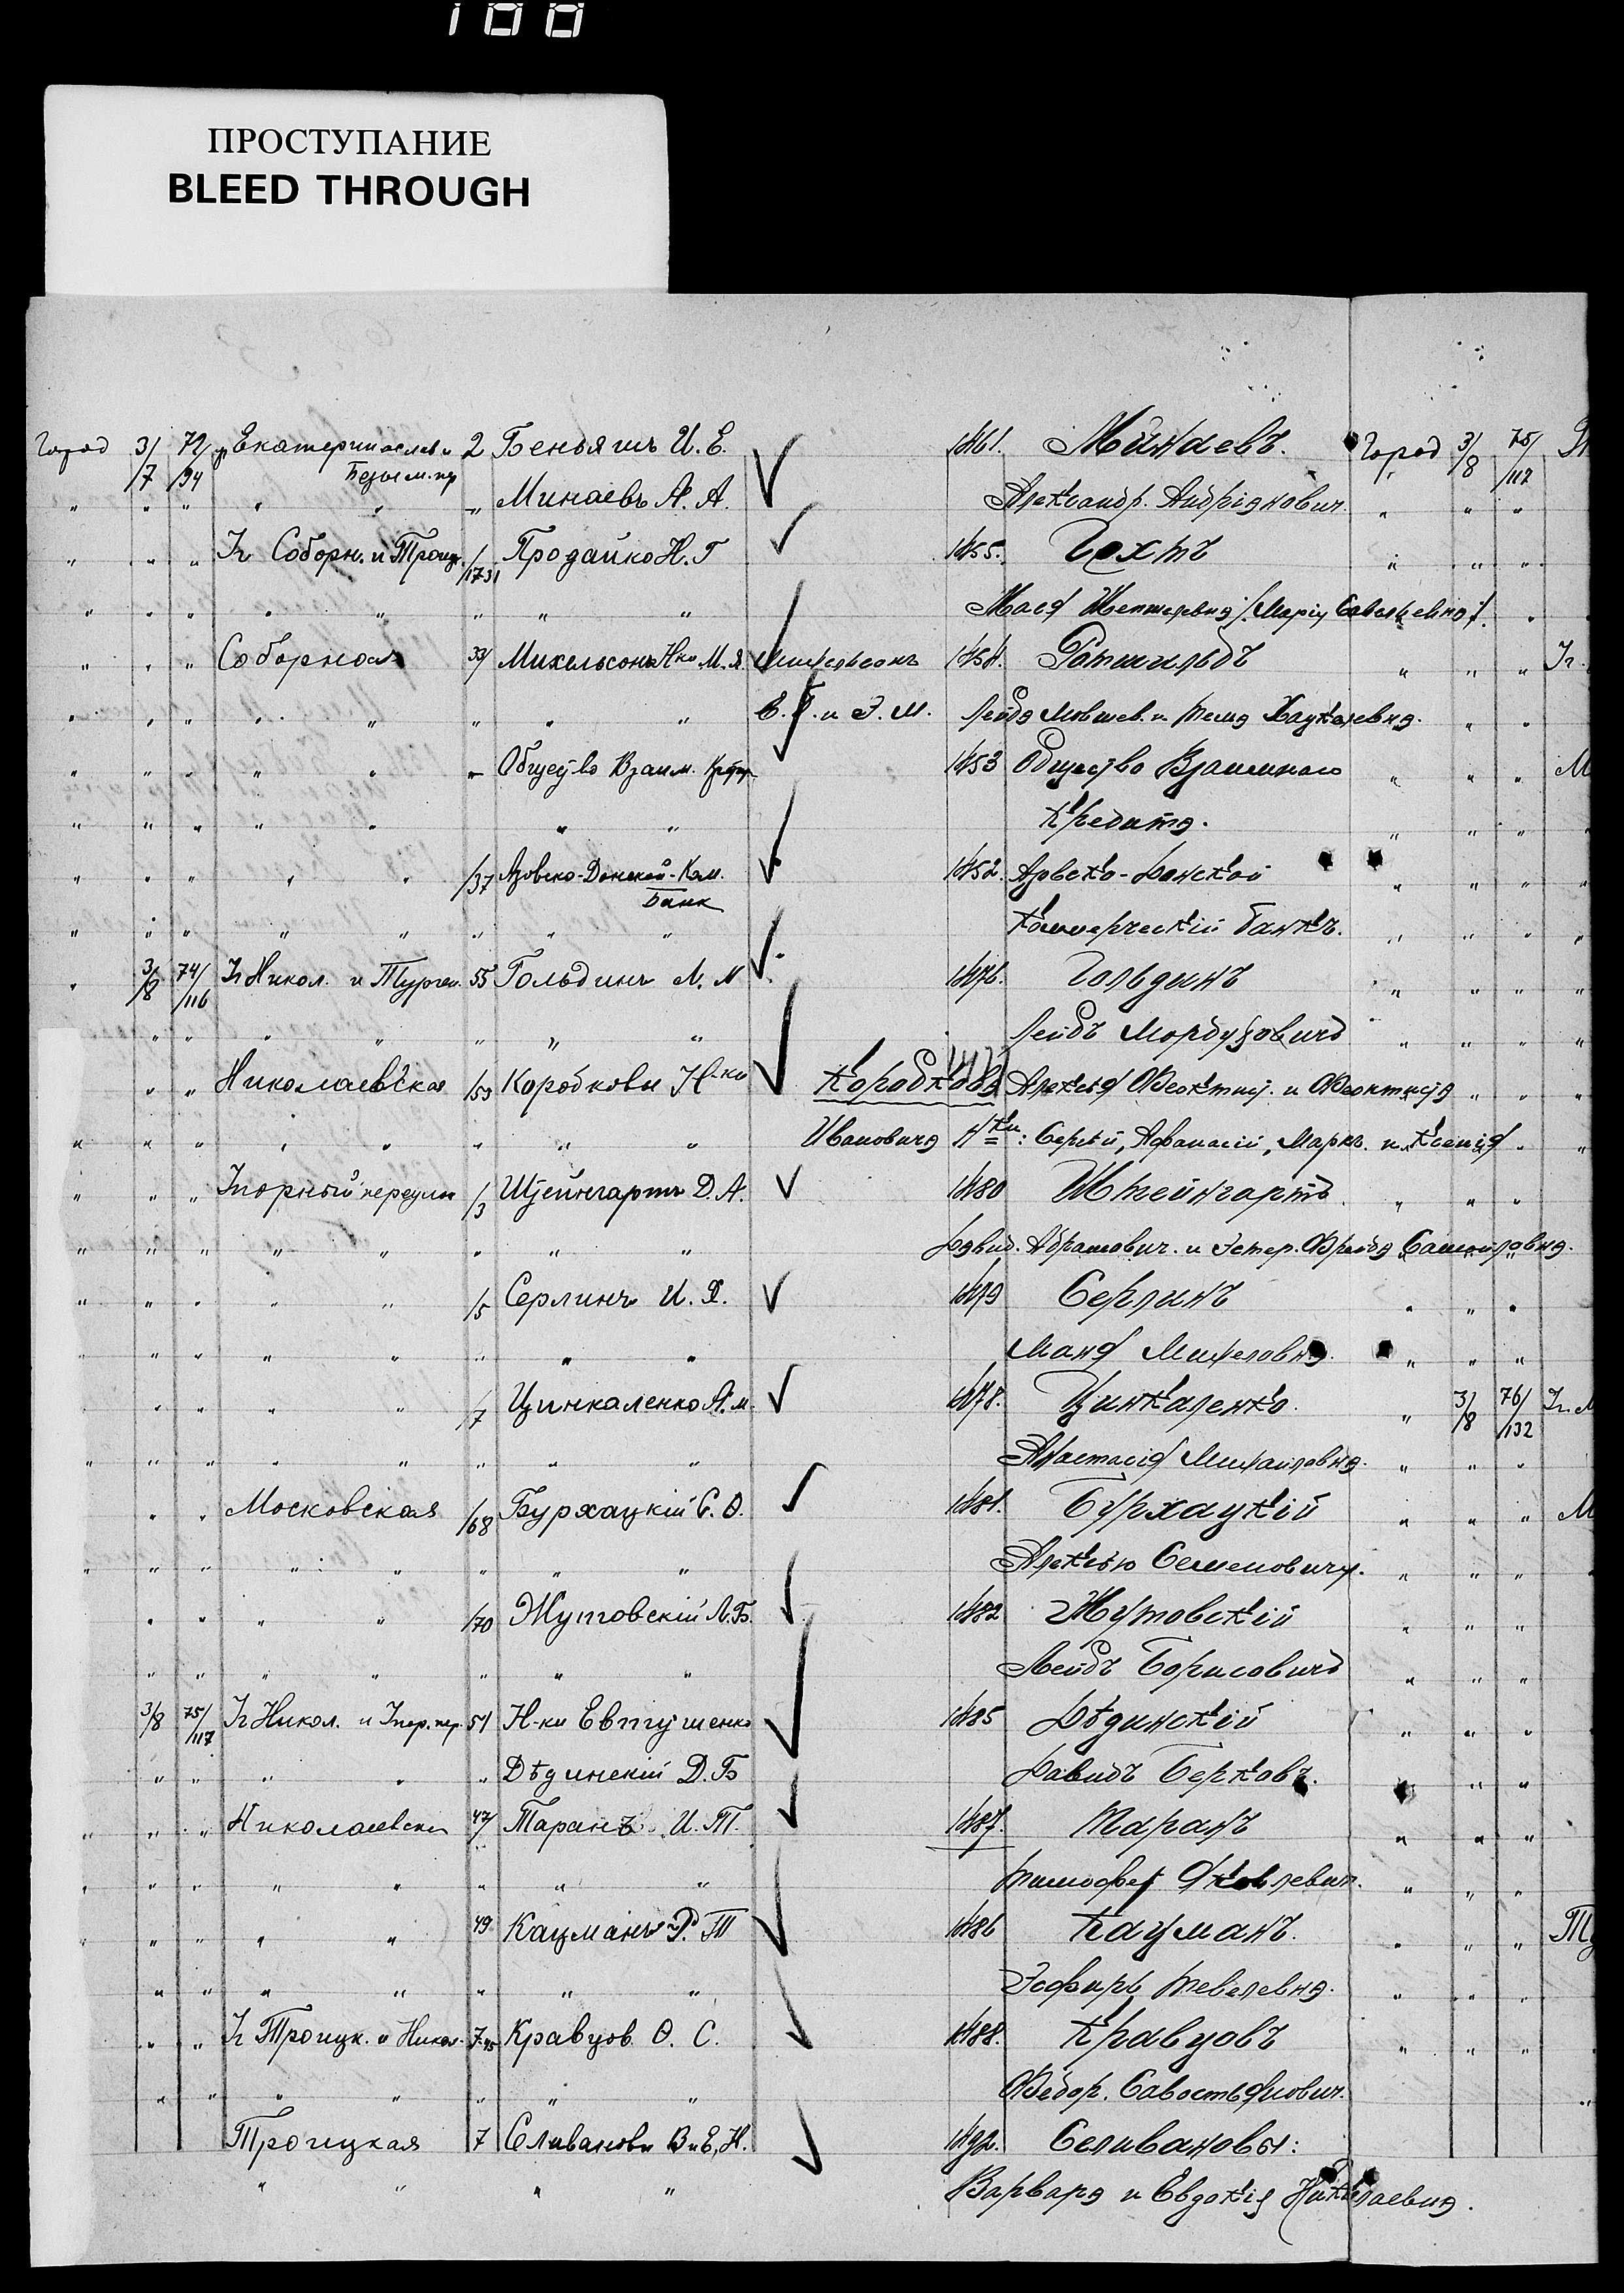 100
ПРОСТУПАНИЕ
BLEED THROUGH
Город 3/7 72/94 Екатеринославск 2 Беньяшъ И. Е. 1461. Минаевъ. Город 3/8 75/117
Безым. пр
" " " " " " Минаевъ А. А. Александр. Андріанович. " " "
" " " Уг Соборн. и Троицк. 1/1731 Продайко Н. Г 1455. Гохтъ " " "
" " " " " " " " Марія Савельевна " "
" " " Соборная 33/ Михельсонъ Н-ки М. Я. Михельсонъ 1454. Ротшильдъ " " " Уг.
" " " " " " " " Е. Г. и Э. М. Лейба Мовшев. и " "
" " " " " " Общество Взаим. Кредит 1453 Общество Взаимнаго " " " М
" " " " " " " Кредита. " " "
" " " " " /37 Азовско-Донской-Ком. 1452. Азовско-Донской " " " "
Банк
" " " " " " " " Коммерческій банкъ. " " " "
" 3/8 74/116 Уг Никол. и Турген. 55 Гольдинъ Л. М 1476. Гольдинъ " " " "
" " " " " " " Лейбъ Мордуховичъ " " " "
" " Николаевская /53 Коробковы Н-ки Коробкова Алексѣя Феоктист. и Феоктиста " " "
" " " " " " " " Ивановича Н-ки: Сергѣй, Афанасій, Маркъ и Ксенія " "
" " " Узорный переулок /3 Штейнгартъ Д. А. 1480 Штейнгартъ " " "
" " " " " " " " Давид. Абрамович. и Эстер. Фрейда Самойловна.
" " " " " /5 Серлинъ И. Х. 1479 Серлинъ " " "
" " " " " " " " Михеловна " " "
" " " " " /7 Цинкаленко А. М. 1478. Цинкаленко. " 3/8 76/132 Уг. М
" " " " " " " " Анастасія Михайловна. " " "
" " Московская /68 Бурхацкій С. О. 1481. Бурхацкій " " " М
" " " " " " " " Алексѣю Семеновичу. " " "
" " " " /70 Жутовскій Л. Б. 1482 Жутовскій " " "
" " " " " " " Лейбъ Борисовичъ " " "
3/8 75/117 Уг Никол. и Узор. пер. 51 Н-ки Евтушенко 1485 Дѣдинскій " " "
" " " " " Дѣдинскій Д. Б Давидъ Берковъ. " " "
" " " Николаевская 47/ Таранъ И. Т. 1487. Таранъ " " "
" " " " " " " " Тимофей Яковлевич. " " "
" " " " " 49. Кацманъ Э. Т 1486 Кацманъ. " " " Ту
" " " " " " " Эсфирь Тевелевна. " " "
" " Уг Троицк. и Никол. 7/45 Кравцов Ѳ. С. 1488. Кравцовъ " " "
" " " " " " " Федор. Савостьянович. "
Троицкая 7 Селивановы В и Е. Н. 1492. Селивановы:
" " " " Варвара и Евдокія Николаевна.